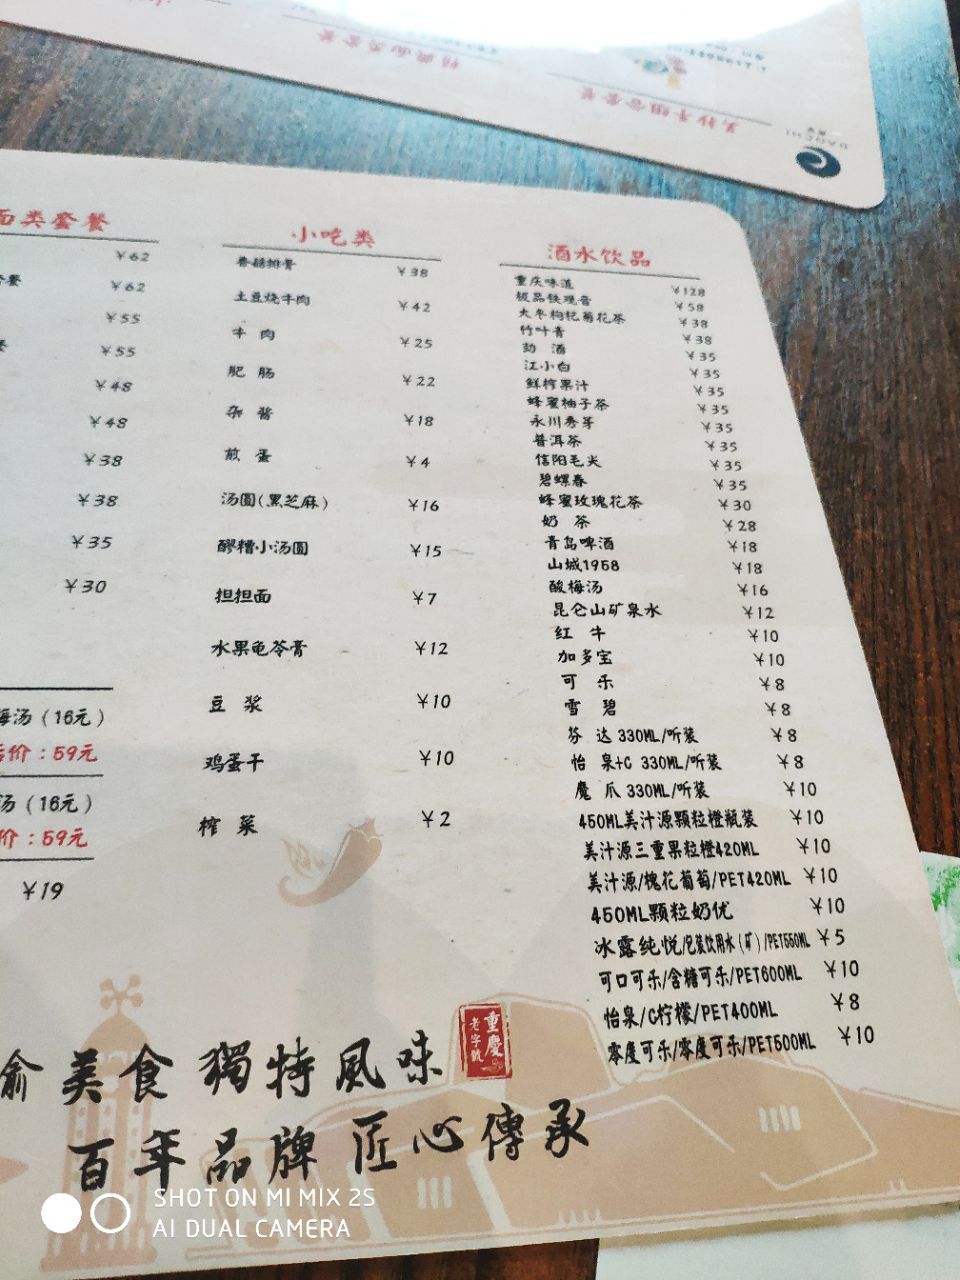 面类套餐
¥62
¥62
¥55
¥55
¥48
¥48
¥38
¥38
¥35
¥30
梅汤（16元）
价：59元
汤（16元）
价：59元
¥19
小吃类
香菇排骨 ¥38
土豆烧牛肉 ¥42
牛肉 ¥25
肥肠 ¥22
杂酱 ¥18
煎蛋 ¥4
汤圆(黑芝麻) ¥16
醪糟小汤圆 ¥15
担担面 ¥7
水果龟苓膏 ¥12
豆浆 ¥10
鸡蛋干 ¥10
榨菜 ¥2
酒水饮品
重庆味道 ¥128
极品铁观音 ¥58
大枣枸杞菊花茶 ¥38
竹叶青 ¥38
劲酒 ¥35
江小白 ¥35
鲜榨果汁 ¥35
蜂蜜柚子茶 ¥35
永川秀芽 ¥35
普洱茶 ¥35
信阳毛尖 ¥35
碧螺春 ¥35
蜂蜜玫瑰花茶 ¥30
奶茶 ¥28
青岛啤酒 ¥18
山城1958 ¥18
酸梅汤 ¥16
昆仑山矿泉水 ¥12
红牛 ¥10
加多宝 ¥10
可乐 ¥8
雪碧 ¥8
芬达 330ML/听装 ¥8
怡泉+C 330ML/听装 ¥8
魔爪 330ML/听装 ¥10
450ML美汁源颗粒橙瓶装 ¥10
美汁源三重果粒橙420ML ¥10
美汁源/槐花葡萄/PET420ML ¥10
450ML颗粒奶优 ¥10
冰露纯悦/包装饮用水(矿)/PET550ML ¥5
可口可乐/含糖可乐/PET600ML ¥10
怡泉/C柠檬/PET400ML ¥8
零度可乐/零度可乐/PET500ML ¥10
渝美食獨特風味
重慶
老字號
百年品牌匠心傳承
SHOT ON MI MIX 2S
AI DUAL CAMERA